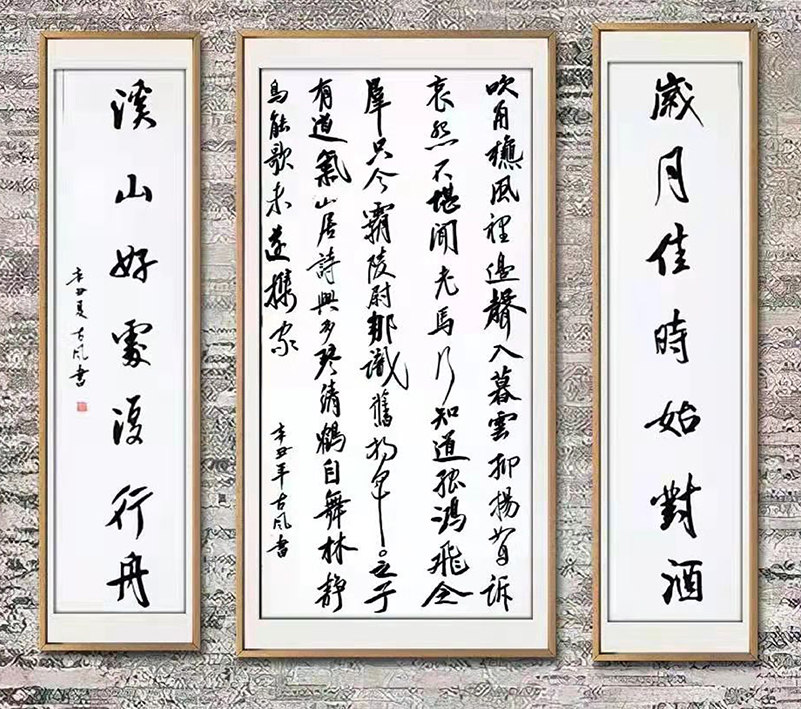 歲月佳時始對酒
吹角樵風裡邊聲入暮雲抑揚訴
哀怨不堪聞老馬行知道孤鴻飛念
群只今霸陵尉那識舊將軍之子
有道氣山居詩興多琴清鶴自舞林靜
鳥能歌未遂攜家
辛丑年古風書
溪山好處行舟
辛丑夏古風書